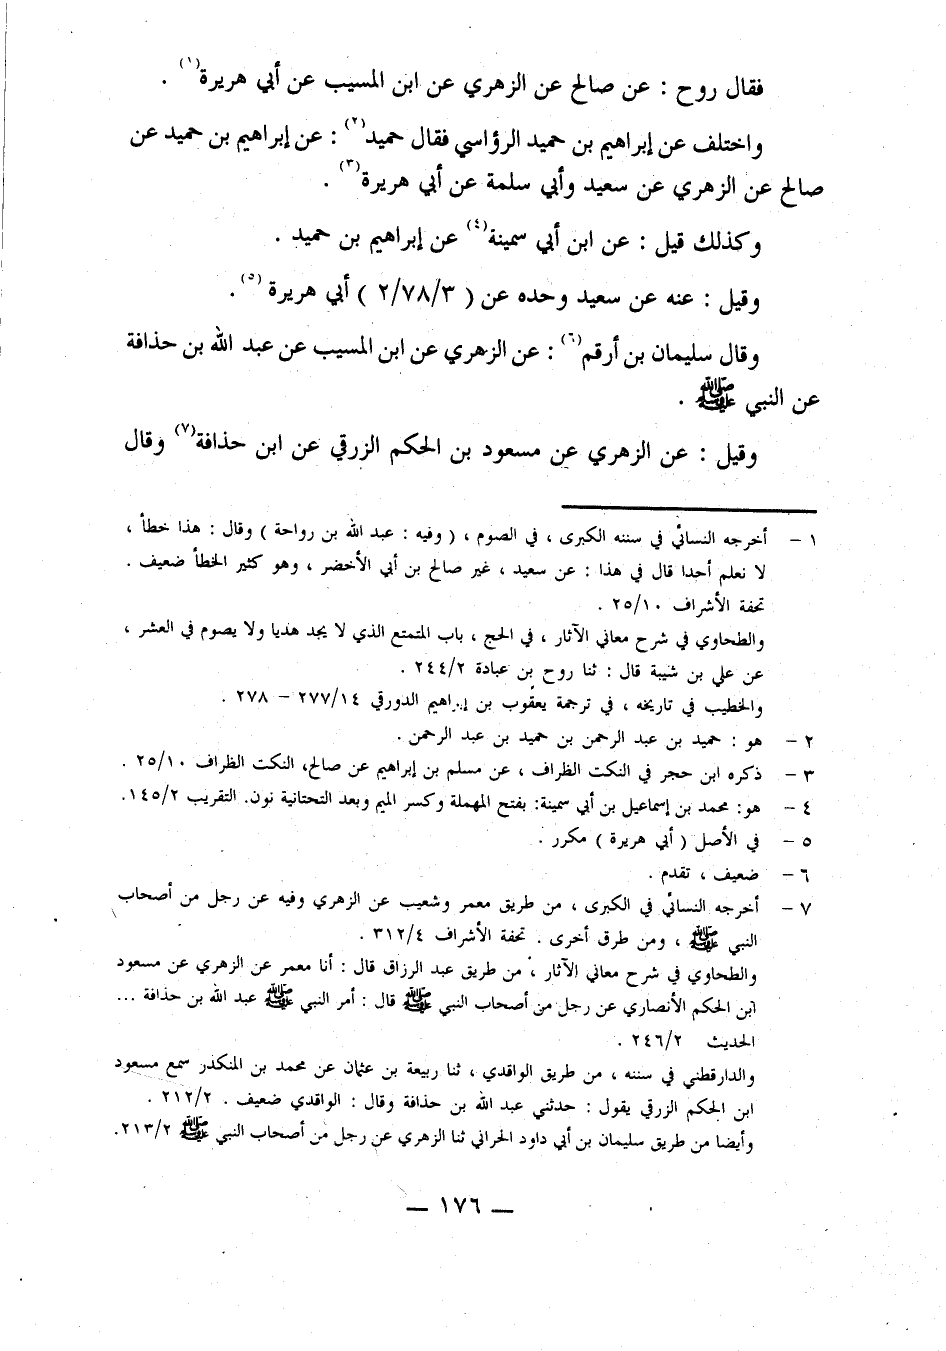 فقال روح : عن صالح عن الزهري عن ابن المسيب عن أبي هريرة(١) .
واختلف عن إبراهيم بن حميد الرؤاسي فقال حميد(٢) : عن إبراهيم بن حميد عن
صالح عن الزهري عن سعيد وأبي سلمة عن أبي هريرة(٣) .
وكذلك قيل : عن ابن أبي سمينة(٤) عن إبراهيم بن حميد .
وقيل : عنه عن سعيد وحده عن ( ٢/٧٨/٣ ) أبي هريرة (٥) .
وقال سليمان بن أرقم(٦) : عن الزهري عن ابن المسيب عن عبد الله بن حذافة
عن النبي ﷺ .
وقيل : عن الزهري عن مسعود بن الحكم الزرقي عن ابن حذافة(٧) وقال
١ – أخرجه النسائي في سننه الكبرى ، في الصوم ، ( وفيه : عبد الله بن رواحة ) وقال : هذا خطأ ،
لا نعلم أحدا قال في هذا : عن سعيد ، غير صالح بن أبي الأخضر ، وهو كثير الخطأ ضعيف .
تحفة الأشراف ٢٥/١٠ .
والطحاوي في شرح معاني الآثار ، في الحج ، باب المتمتع الذي لا يجد هديا ولا يصوم في العشر ،
عن علي بن شيبة قال : ثنا روح بن عبادة ٢٤٤/٢ .
والخطيب في تاريخه ، في ترجمة يعقوب بن إبراهيم الدورقي ٢٧٧/١٤ – ٢٧٨ .
٢ – هو : حميد بن عبد الرحمن بن حميد بن عبد الرحمن .
٣ – ذكره ابن حجر في النكت الظراف ، عن مسلم بن إبراهيم عن صالح، النكت الظراف ٢٥/١٠ .
٤ – هو: محمد بن إسماعيل بن أبي سمينة: بفتح المهملة وكسر الميم وبعد التحتانية نون. التقريب ١٤٥/٢.
٥ – في الأصل ( أبي هريرة ) مكرر .
٦ – ضعيف ، تقدم .
٧ – أخرجه النسائي في الكبرى ، من طريق معمر وشعيب عن الزهري وفيه عن رجل من أصحاب
النبي ﷺ ، ومن طرق أخرى . تحفة الأشراف ٣١٢/٤ .
والطحاوي في شرح معاني الآثار ، من طريق عبد الرزاق قال : أنا معمر عن الزهري عن مسعود
ابن الحكم الأنصاري عن رجل من أصحاب النبي ﷺ قال : أمر النبي ﷺ عبد الله بن حذافة ...
الحديث ٢٤٦/٢ .
والدارقطني في سننه ، من طريق الواقدي ، ثنا ربيعة بن عثمان عن محمد بن المنكدر سمع مسعود
ابن الحكم الزرقي يقول : حدثني عبد الله بن حذافة وقال : الواقدي ضعيف . ٢١٢/٢ .
وأيضا من طريق سليمان بن أبي داود الحراني ثنا الزهري عن رجل من أصحاب النبي ﷺ ٢١٣/٢.
— ١٧٦ —